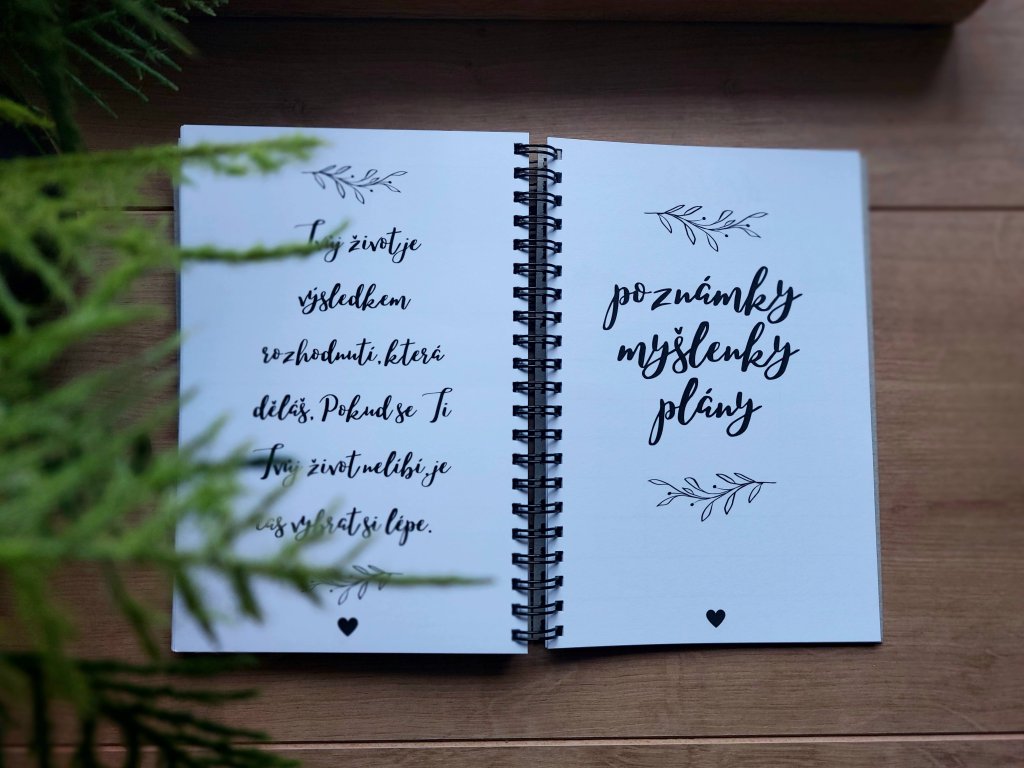 Tvůj život je
výsledkem
rozhodnutí, která
děláš. Pokud se Ti
Tvůj život nelíbí, je
čas vybrat si lépe.
poznámky
myšlenky
plány